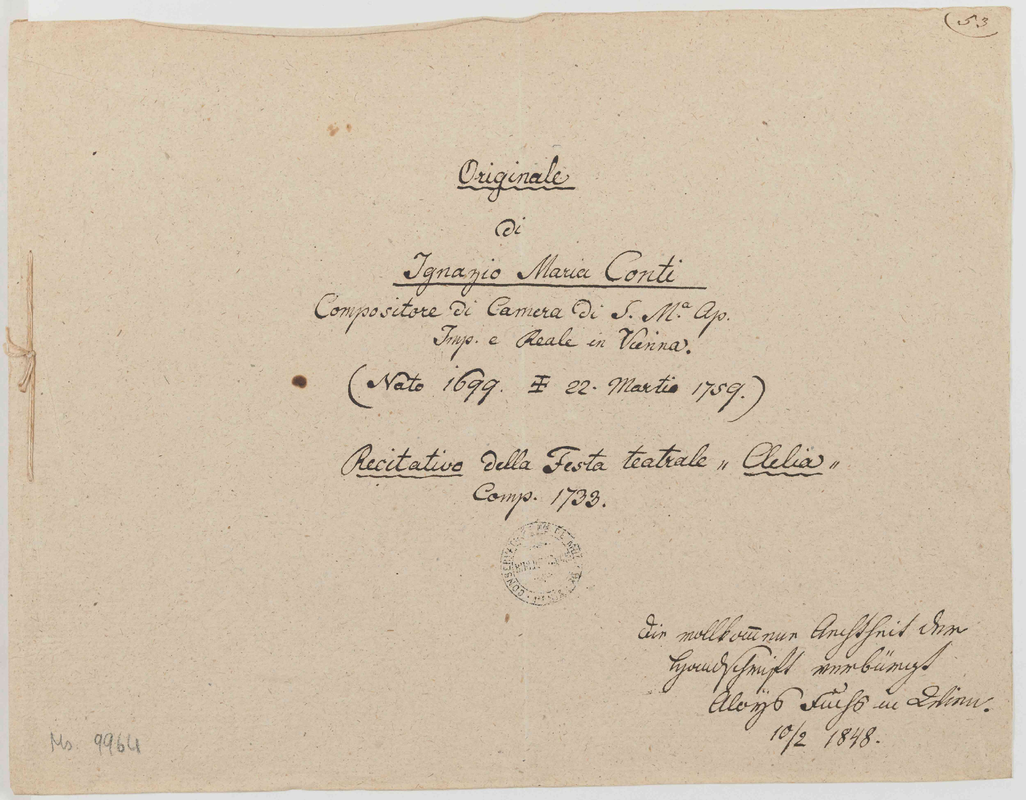 53
Originale
di
Ignazio Maria Conti
Compositore di Camera di S. M.ª Ap.
Imp. e Reale in Vienna.
(Nato 1699. ✠ 22. Martio 1759.)
Recitativo della Festa teatrale „ Clelia „
Comp. 1733.
Die vollkom̅ene Aechtheit der
Handschrift verbürgt
Aloys Fuchs in Wien.
10/2 1848.
Ms. 9964